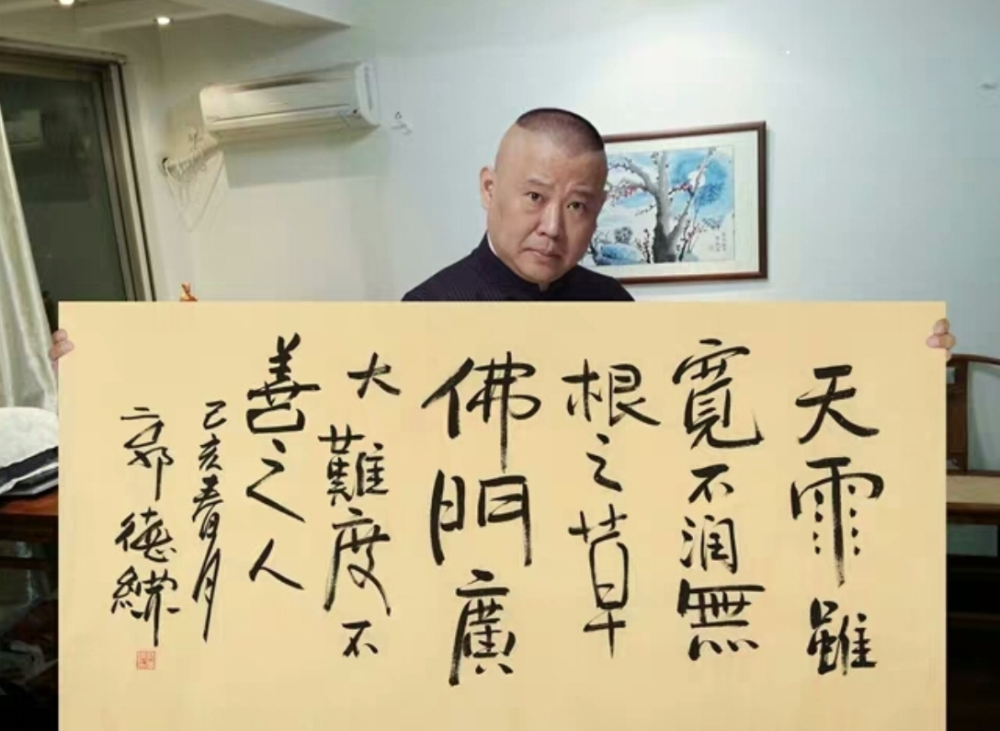 天雨雖
寬不润無
根之草
佛門廣
大難度不
善之人
己亥春月
郭德纲